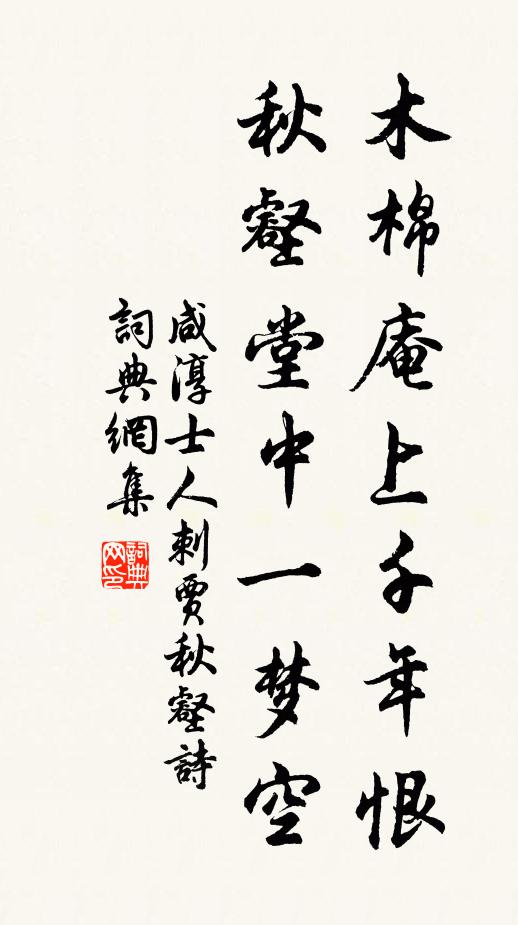 木棉庵上千年恨
秋壑堂中一梦空
咸淳士人刺賈秋壑詩
詞典網集
詞典网印